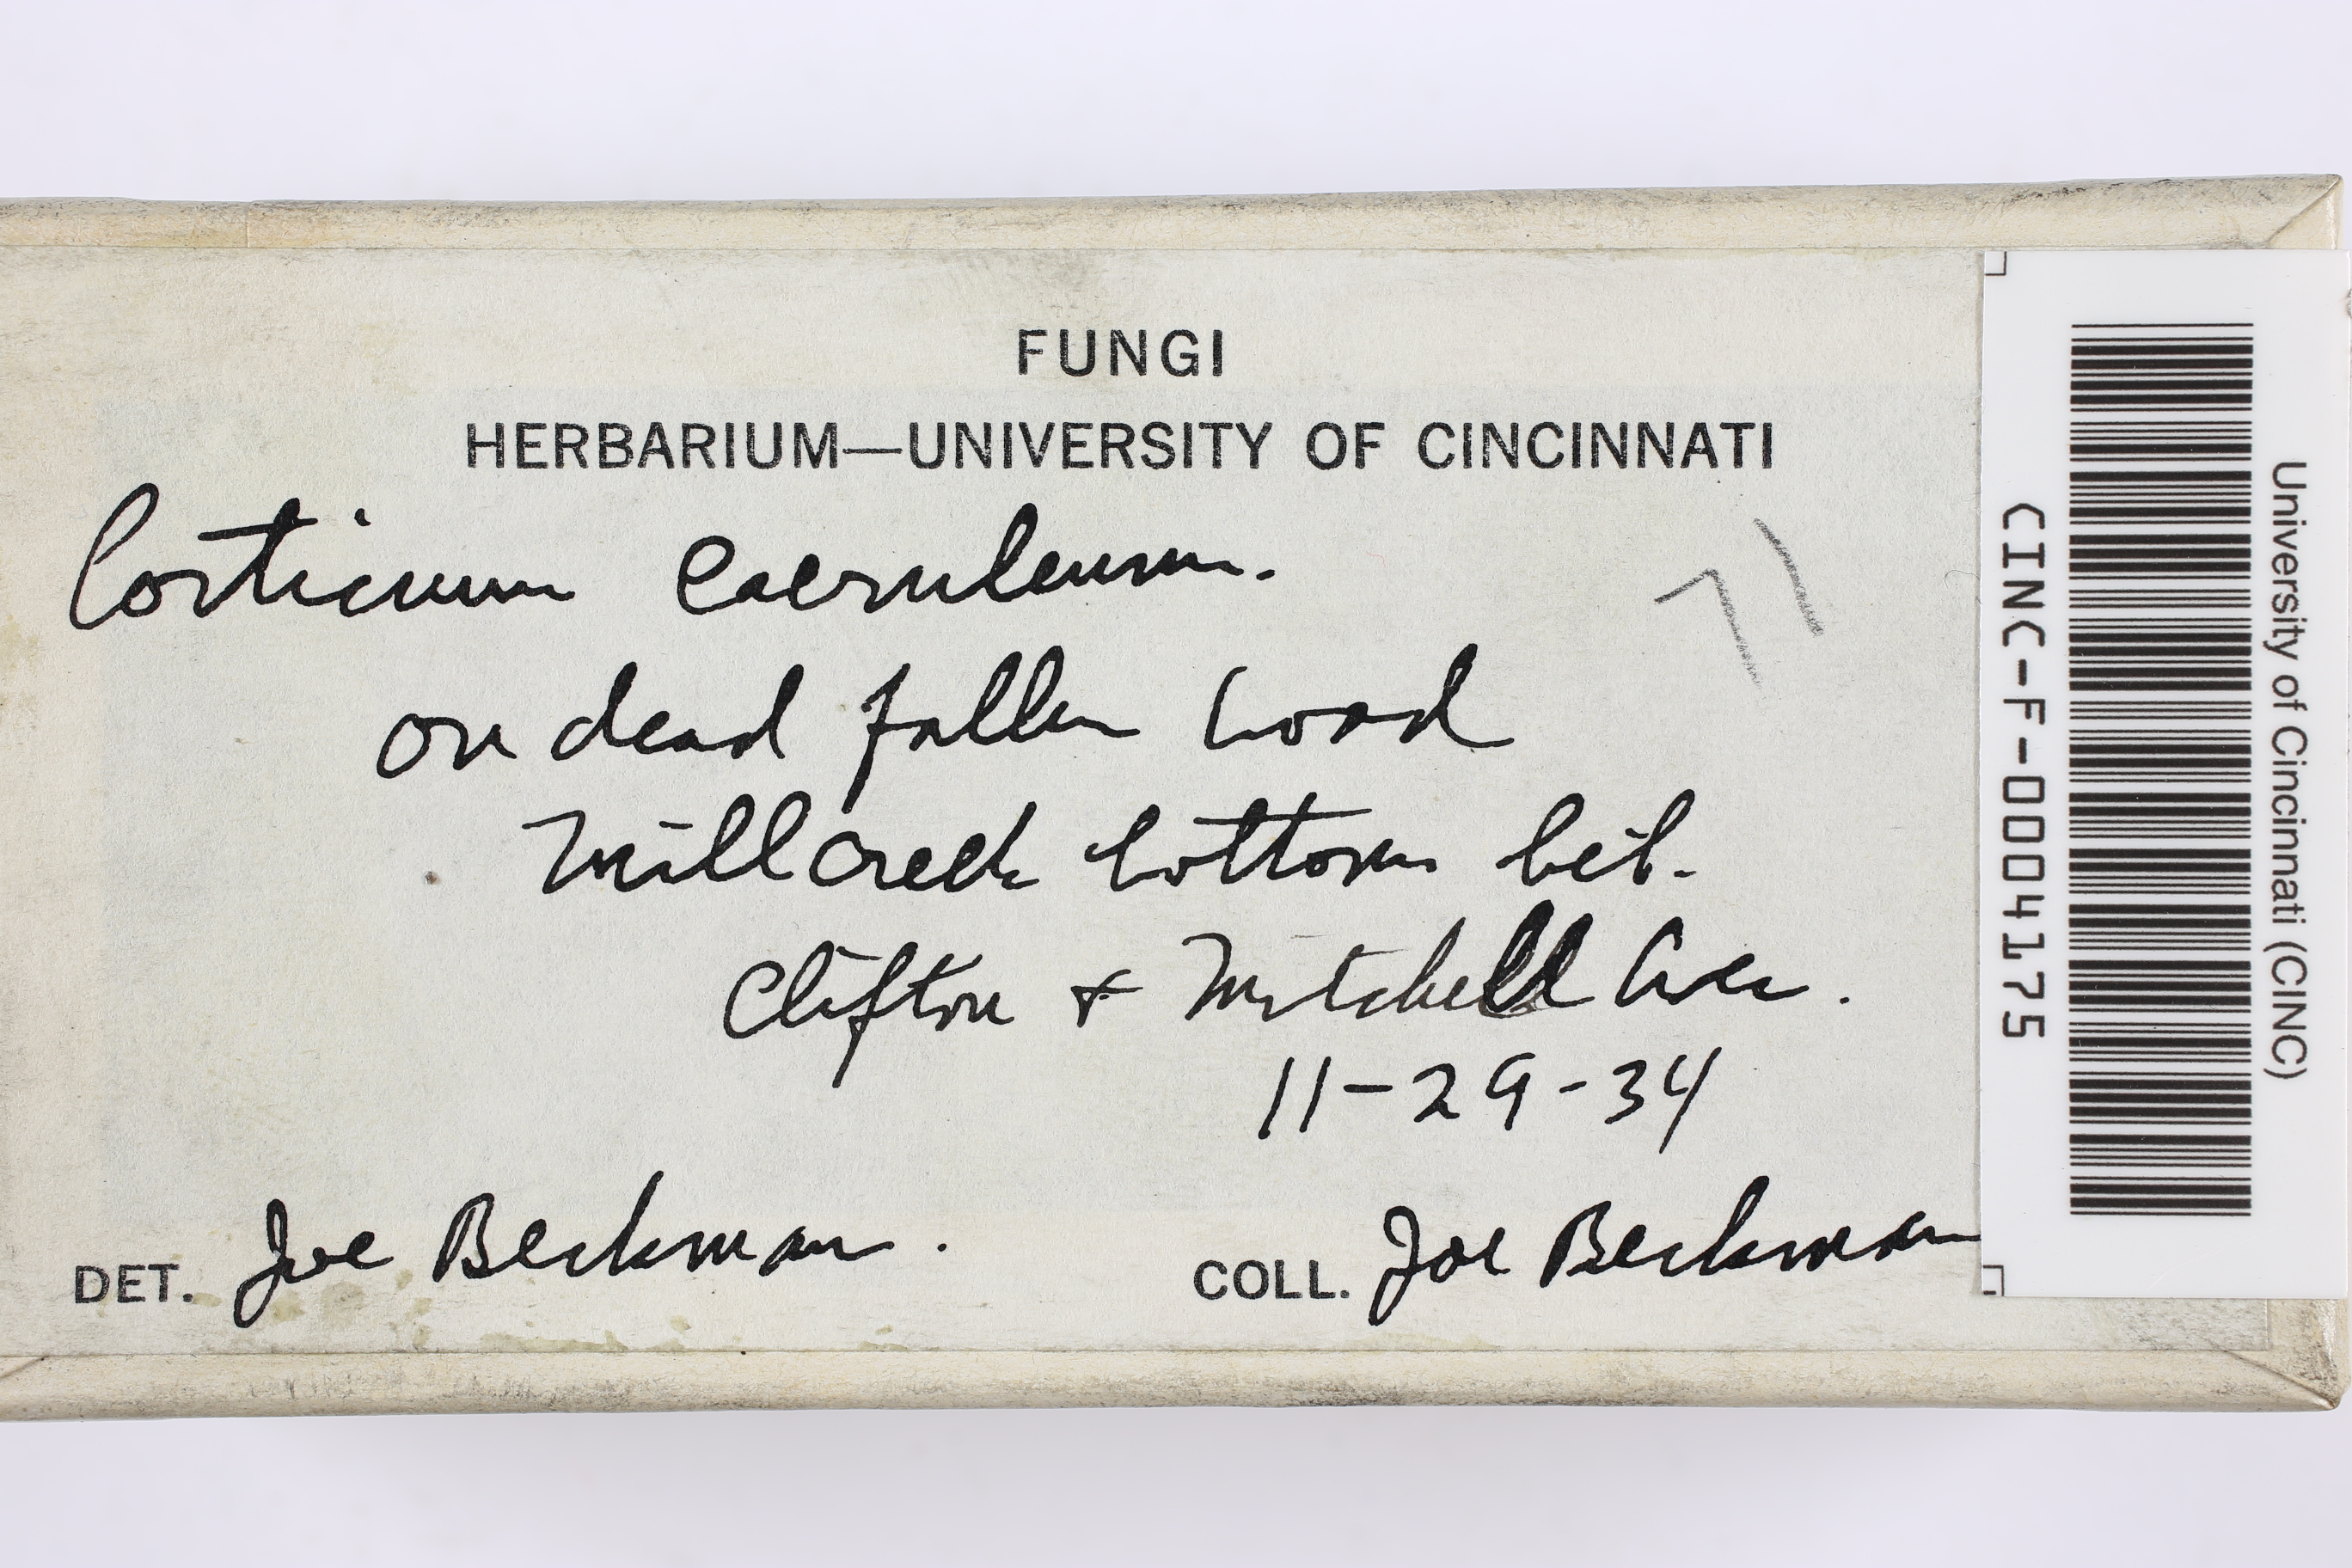 FUNGI
HERBARIUM—UNIVERSITY OF CINCINNATI
Corticium caeruleum.
71
on dead fallen wood
Millcreek bottoms bet.
Clifton & Mitchell Aves.
11-29-34
DET. Joe Beckman.
COLL. Joe Beckman
University of Cincinnati (CINC)
CINC-F-0004175